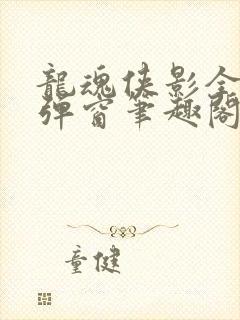 龍魂俠影全
彈窗筆趣閣
童健